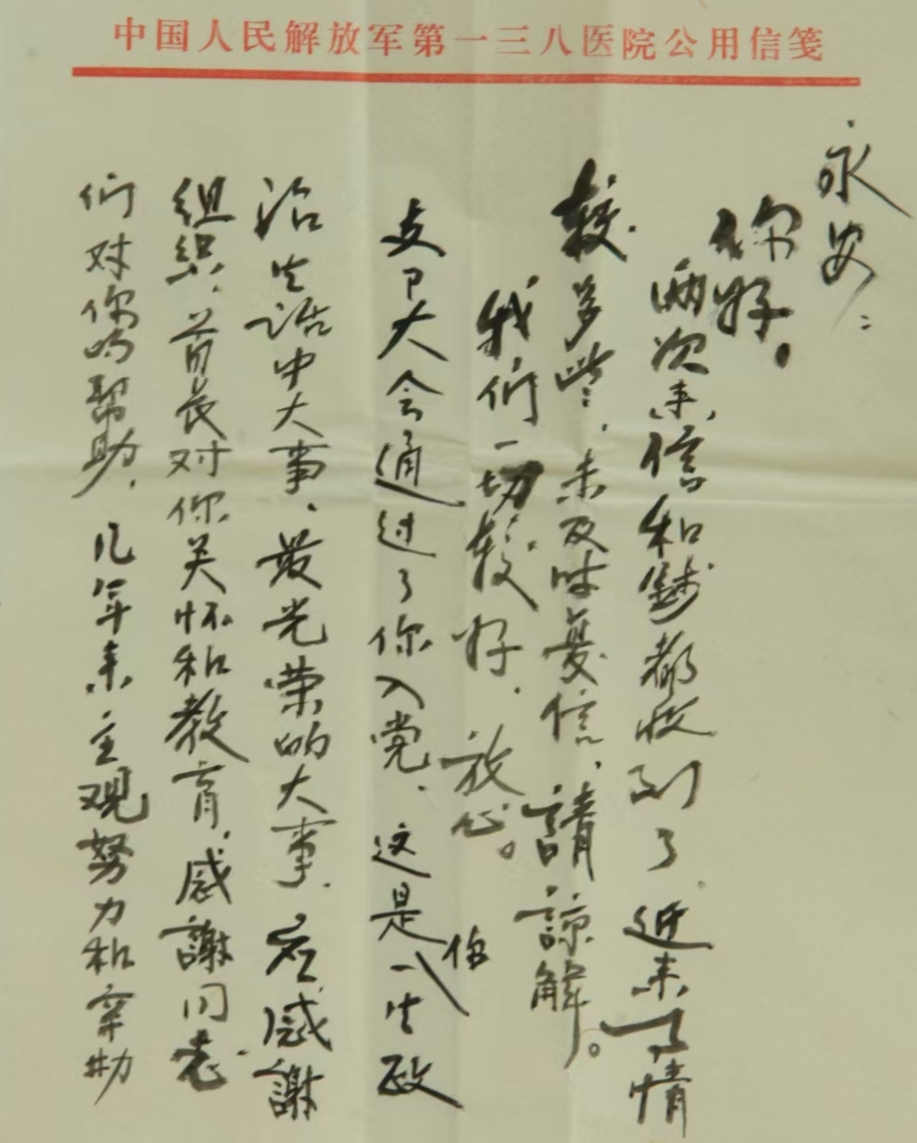 中国人民解放军第一三八医院公用信笺
永安：
你好。
兩次来信和錢都收到了，近来事情
较多些，未及时复信，請諒解。
我们一切较好，放心。
支卩大会通过了你入党，这是你一生政
治生活中大事、最光荣的大事，应感謝
组织、首长对你关怀和教育，感謝同志
们对你的幫助，几年来主观努力和